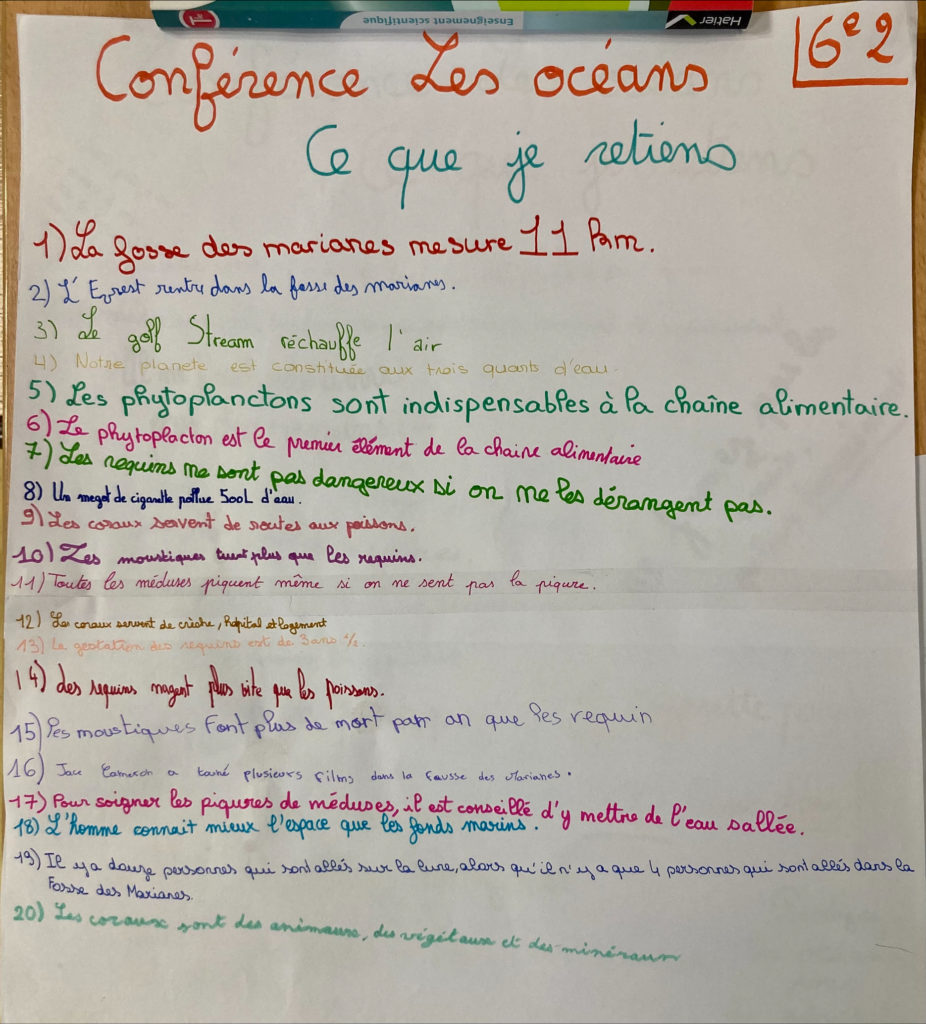 Enseignement scientifique
1re
Hatier
Conférence Les océans
6e2
Ce que je retiens
1) La fosse des marianes mesure 11 km.
2) L'Evrest rentre dans la fosse des marianes.
3) Le golf Stream réchauffe l'air
4) Notre planete est constituée aux trois quants d'eau.
5) Les phytoplanctons sont indispensables à la chaîne alimentaire.
6) Le phytoplacton est le premier élément de la chaine alimentaire
7) Les requins ne sont pas dangereux si on ne les dérangent pas.
8) Un megot de cigarette pollue 500L d'eau.
9) Les coraux servent de routes aux poissons.
10) Les moustiques tuent plus que les requins.
11) Toutes les méduses piquent même si on ne sent pas la piqure.
12) Les coraux servent de crèche, hôpital et logement
13) La gestation des requins est de 3 ans 1/2.
14) des requins nagent plus vite que les poissons.
15) les moustiques font plus de mort parr an que les requin
16) Jace Cameron a tourné plusieurs films dans la fausse des Marianes.
17) Pour soigner les piqures de méduses, il est conseillé d'y mettre de l'eau sallée.
18) L'homme connait mieux l'espace que les fonds marins.
19) Il y a douze personnes qui sont allés sur la lune, alors qu'il n'y a que 4 personnes qui sont allés dans la
Fosse des Marianes.
20) Les coraux sont des animaux, des végétaux et des minéraux